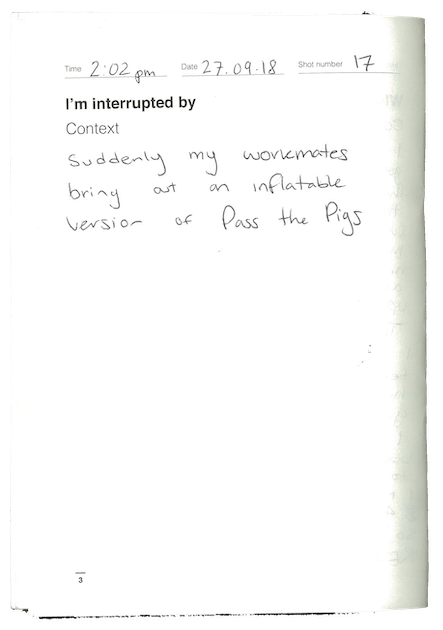 Time 2:02 pm Date 27.09.18 Shot number 17
I'm interrupted by
Context
Suddenly my workmates
bring out an inflatable
version of Pass the Pigs
3